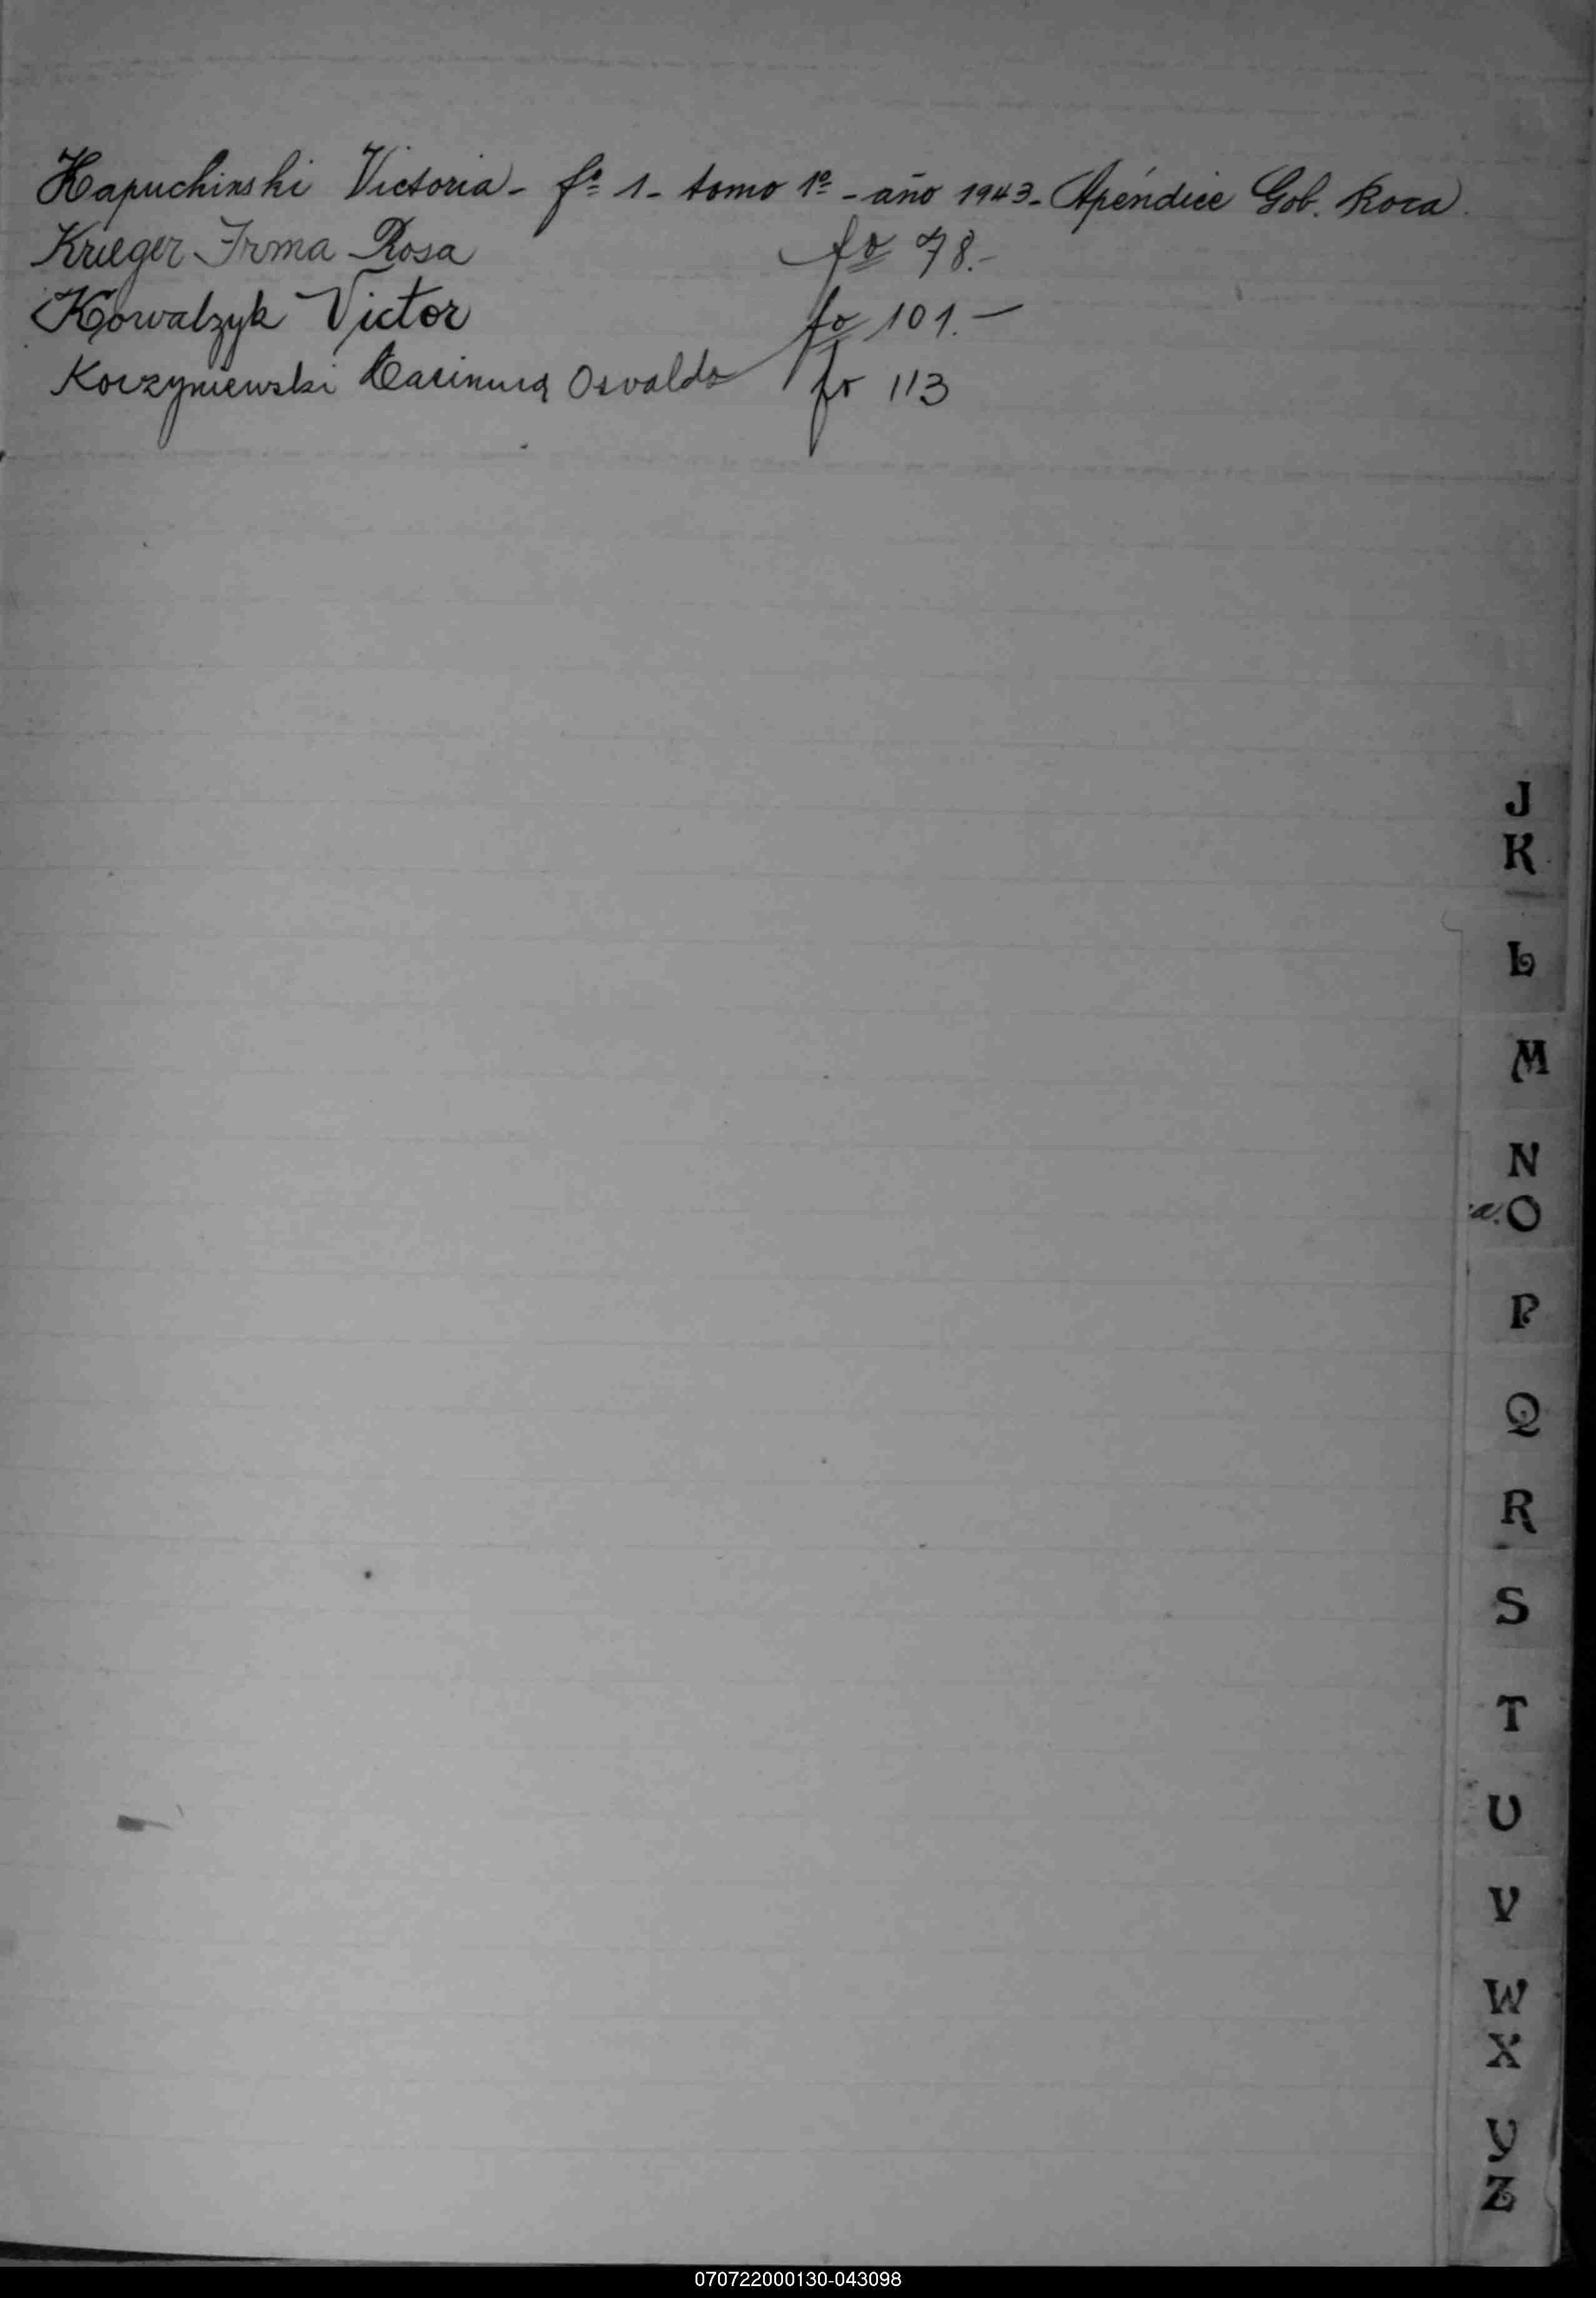 Kapuchinski Victoria - fº 1 - tomo 1º - año 1943 - Apéndice Gob. Roca
Krieger Irma Rosa fo 78.-
Kowalzyk Victor fo 101.-
Korzyniewski Osvaldo fo 113
J
K
L
M
N
a. O
P
Q
R
S
T
U
V
W
X
Y
Z
070722000130-043098